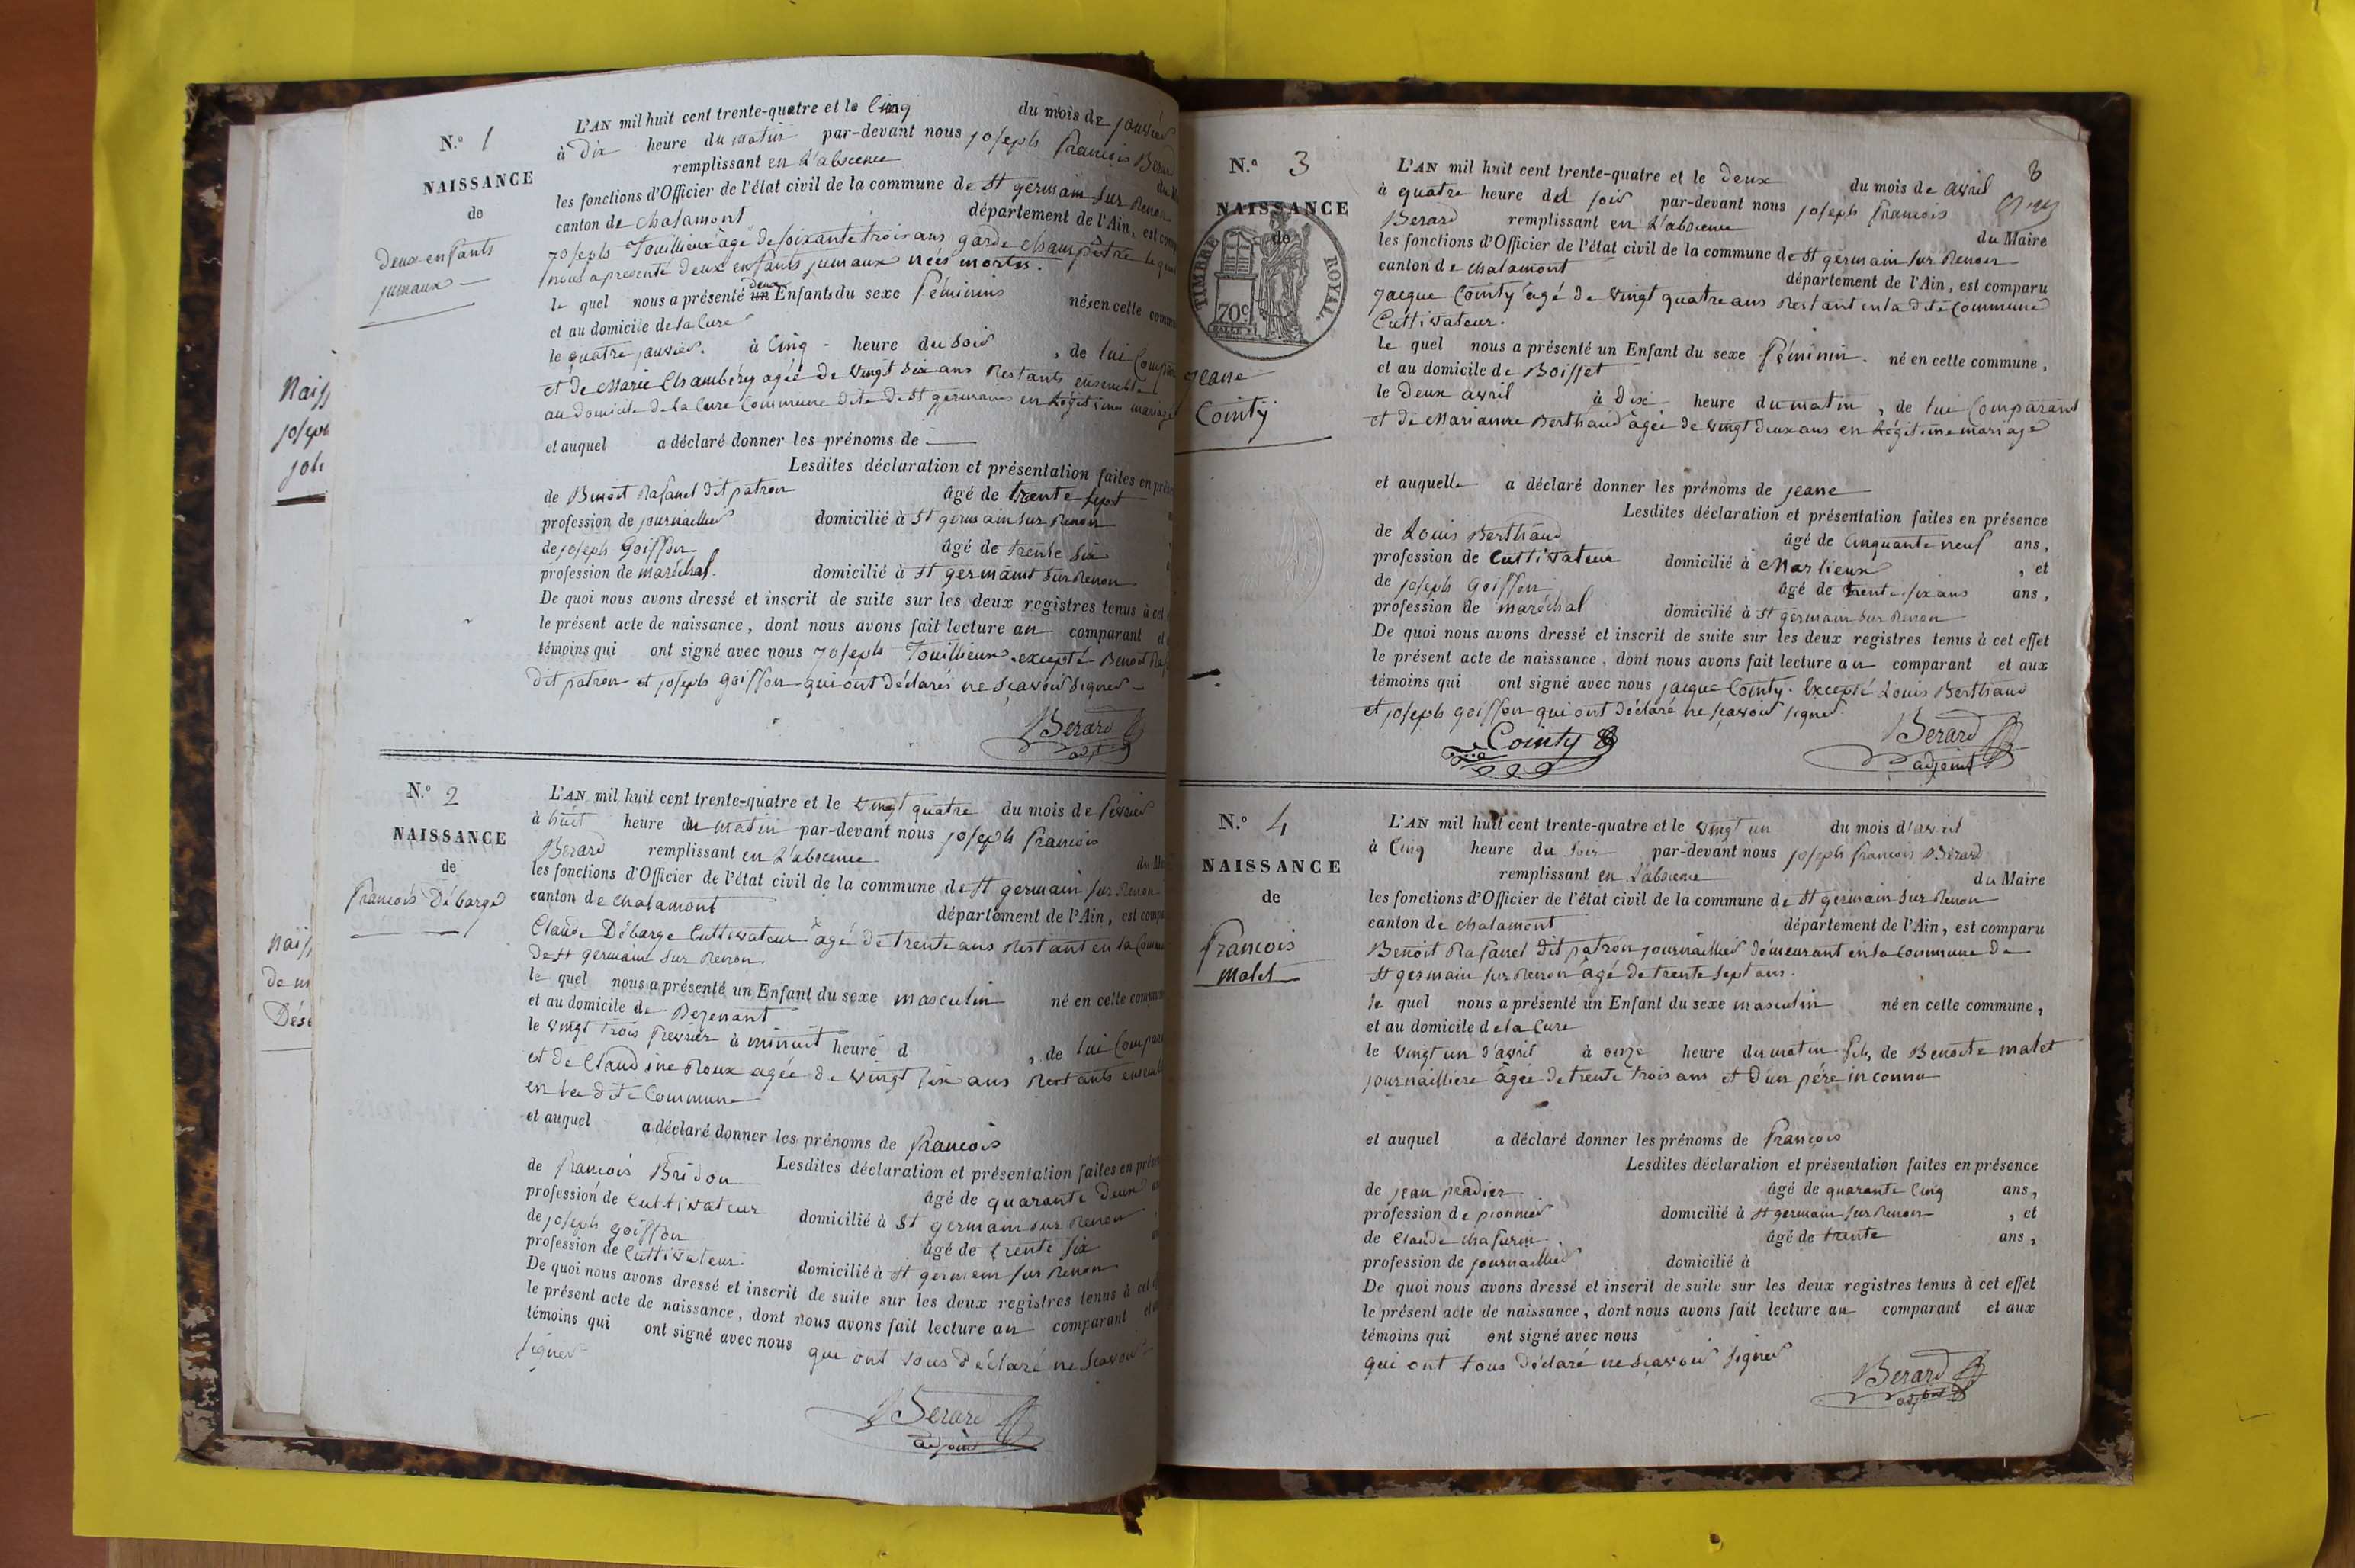 Naiss
joseph
N.o 1
NAISSANCE
de
Deux enfants
jumaux
L'AN mil huit cent trente-quatre et le Cinq du mois de janvier
à Dix heure du matin par-devant nous joseph francois Berard
remplissant en L'absence du
les fonctions d'Officier de l'état civil de la commune de St germain sur Renon
canton de chalamont département de l'Ain, est comp
joseph Touillieux âgé de soixante trois ans garde champêtre lequel
nous a présenté deux enfants jumaux nées mortes.
le quel nous a présenté un deux Enfants du sexe féminins nés en cette commu
et au domicile de la Cure
le quatre janvier. à Cinq heure du soir, de lui Comp
et de Marie Chambéry agée de vingt six ans Restants ensemble
au domicile de la Cure Commune dite de St germain en Légitime mariage
et auquel a déclaré donner les prénoms de
Lesdites déclaration et présentation faites en prés
de Benoit Rafanel dit patron âgé de trente sept
profession de journaillier domicilié à St germain sur Renon
de joseph Goiffon âgé de trente six
profession de maréchal. domicilié à St germaint sur Renon
De quoi nous avons dressé et inscrit de suite sur les deux registres tenus à cet
le présent acte de naissance, dont nous avons fait lecture au comparant et
témoins qui ont signé avec nous joseph Touillieux. excepté Benoit Raf
dit patron et joseph Goiffon qui ont déclarés ne sçavoir signer
Berard
adjt
N.o 2
NAISSANCE
de
francois Débarge
L'AN mil huit cent trente-quatre et le vingt quatre du mois de fevrier
à huit heure du matin par-devant nous joseph francois
Berard remplissant en L'absence du Ma
les fonctions d'Officier de l'état civil de la commune de St germain sur Renon
canton de chalamont département de l'Ain, est compa
Claude Débarge Cultivateur âgé de trente ans Restant en la Commu
de St germain sur Renon
le quel nous a présenté un Enfant du sexe masculin né en cette commun
et au domicile de Bezenant
le vingt trois fevrier à minuit heure d , de lui Compar
et de Claudine Roux agée de vingt six ans Restants ensemble
en la dite Commune
et auquel a déclaré donner les prénoms de francois
Lesdites déclaration et présentation faites en prése
de francois Bridon âgé de quarante deux
profession de Cultivateur domicilié à St germain sur Renon
de joseph goiffon âgé de trente six
profession de Cultivateur domicilié à St germain sur Renon
De quoi nous avons dressé et inscrit de suite sur les deux registres tenus à cet
le présent acte de naissance, dont nous avons fait lecture au comparant et
témoins qui ont signé avec nous qui ont tous déclaré ne sçavoir
signer
Berard
adjoint
3
N.o 3
NAISSANCE
de
TIMBRE ROYAL.
70c
Jeane
Cointy
L'AN mil huit cent trente-quatre et le deux du mois de avril
à quatre heure del soir par-devant nous joseph francois
Berard remplissant en L'absence du Maire
les fonctions d'Officier de l'état civil de la commune de St germain sur Renon
canton de chalamont département de l'Ain, est comparu
Jacque Cointy âgé de vingt quatre ans Restant en la dite Commune
Cultivateur.
le quel nous a présenté un Enfant du sexe féminin. né en cette commune,
et au domicile de Boisset
le deux avril à dix heure du matin, de lui Comparant
et de Marianne Berthaud âgée de vingt deux ans en Légitime mariage
et auquelle a déclaré donner les prénoms de jeane
Lesdites déclaration et présentation faites en présence
de Louis Berthaud âgé de Cinquante neuf ans,
profession de Cultivateur domicilié à Marlieux, et
de joseph Goiffon âgé de trente six ans ans,
profession de maréchal domicilié à St germain sur Renon
De quoi nous avons dressé et inscrit de suite sur les deux registres tenus à cet effet
le présent acte de naissance, dont nous avons fait lecture au comparant et aux
témoins qui ont signé avec nous jacque Cointy. Excepté Louis Berthaud
et joseph goiffon qui ont déclaré ne sçavoir signer
Cointy
Berard
adjoint
N.o 4
NAISSANCE
de
francois
malet
L'AN mil huit cent trente-quatre et le vingt un du mois d'avril
à Cinq heure du soir par-devant nous joseph francois Berard
remplissant en L'absence du Maire
les fonctions d'Officier de l'état civil de la commune de St germain sur Renon
canton de chalamont département de l'Ain, est comparu
Benoit Rafanel dit patron journaillier demeurant en la Commune de
St germain sur Renon âgé de trente sept ans.
le quel nous a présenté un Enfant du sexe masculin né en cette commune,
et au domicile de la Cure
le vingt un d'avril à onze heure du matin fils de Benoite malet
journailliere âgée de trente trois ans et d'un pére inconnu
et auquel a déclaré donner les prénoms de françois
Lesdites déclaration et présentation faites en présence
de jean pradier âgé de quarante Cinq ans,
profession de pionnier domicilié à St germain sur Renon, et
de Claude âgé de trente ans,
profession de journaillier domicilié à
De quoi nous avons dressé et inscrit de suite sur les deux registres tenus à cet effet
le présent acte de naissance, dont nous avons fait lecture au comparant et aux
témoins qui ont signé avec nous
qui ont tous déclaré ne sçavoir signer
Berard
adjoint